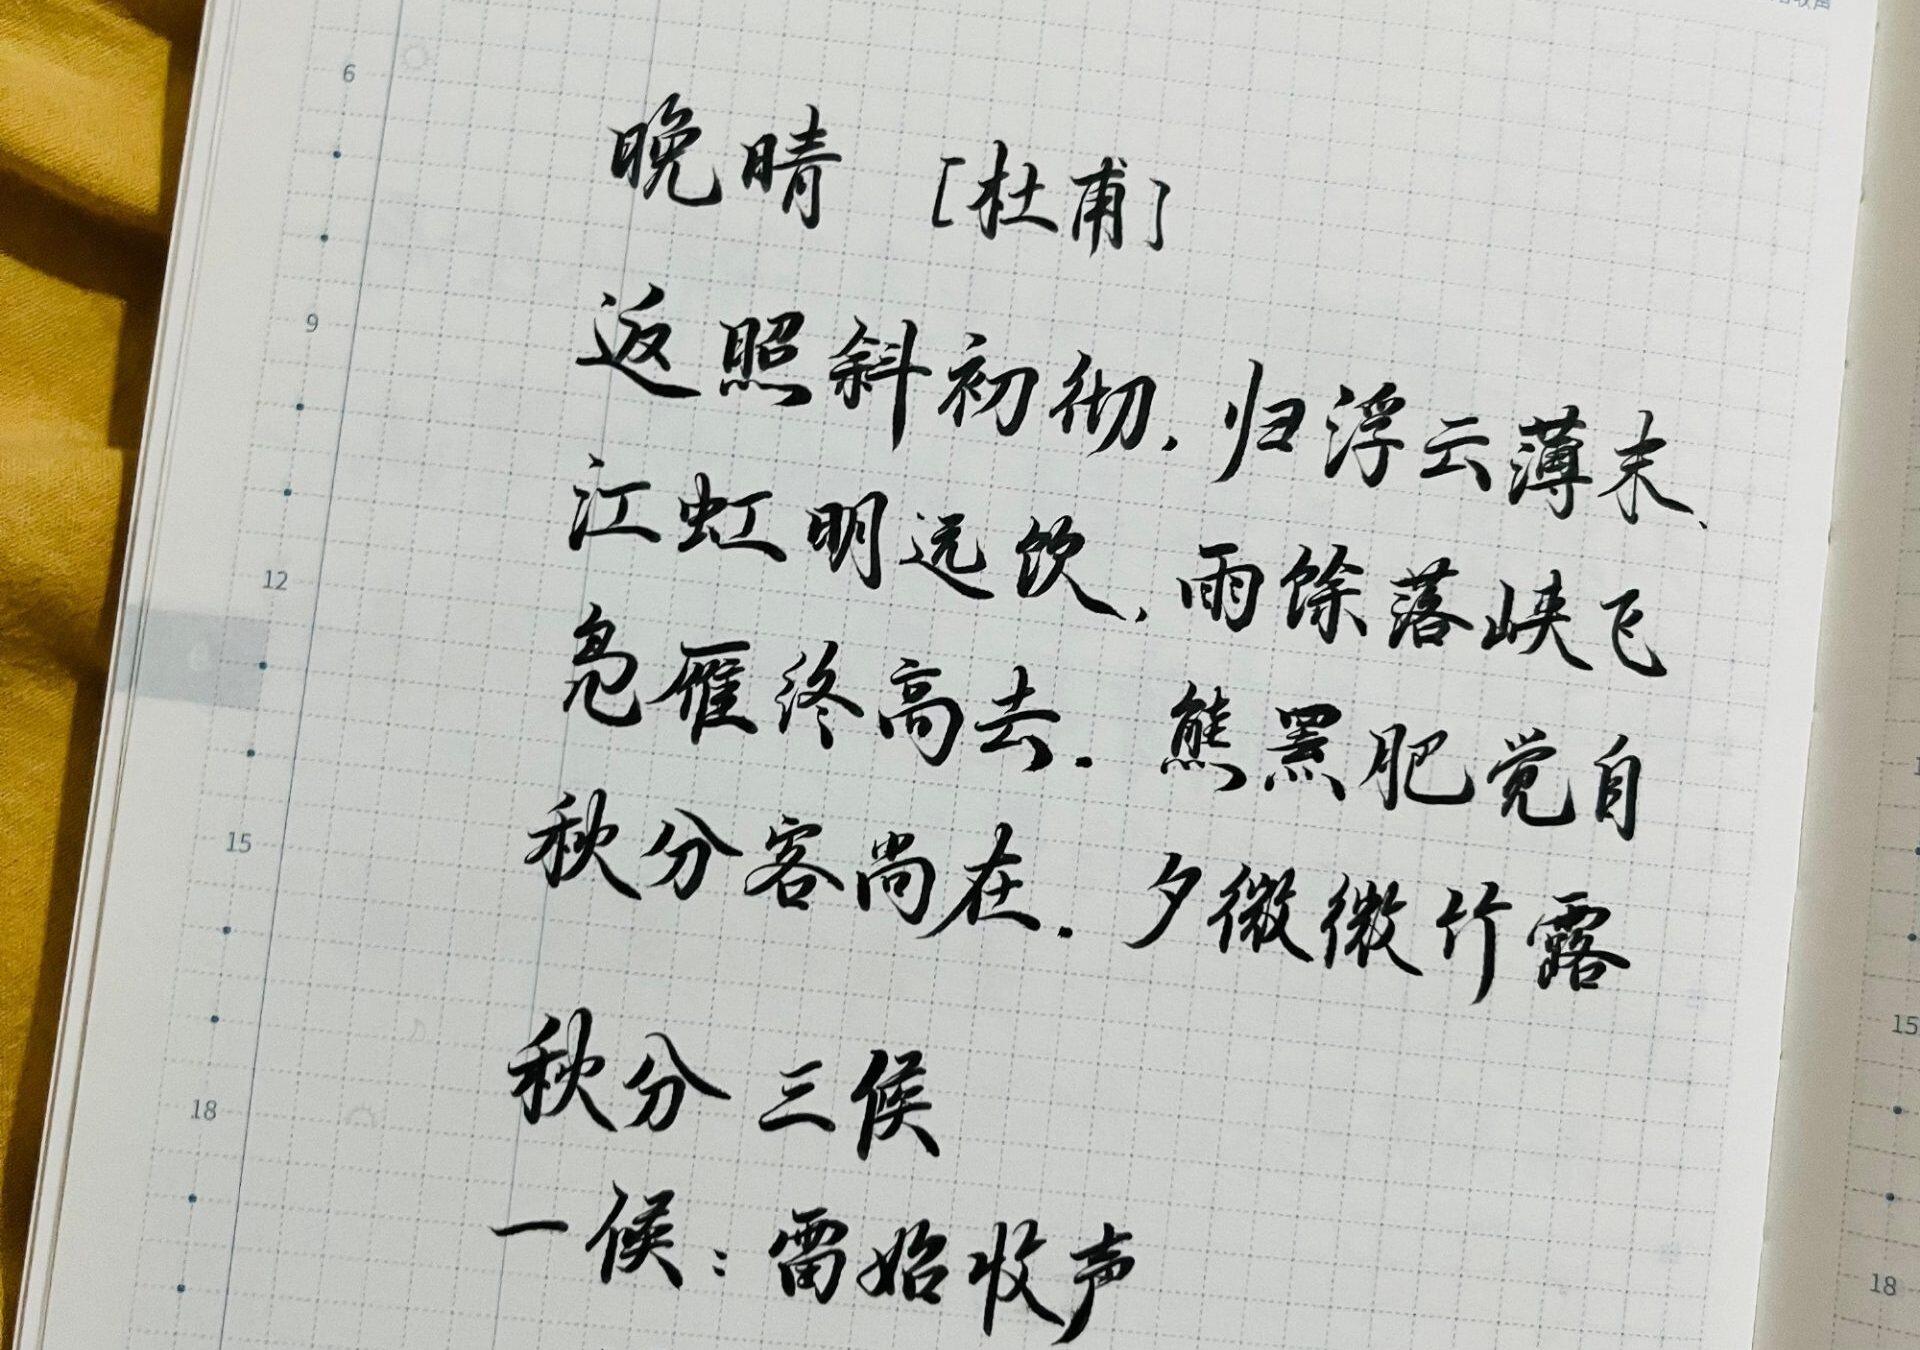 晚晴 [杜甫]
返照斜初彻.归浮云薄末、
江虹明远饮,雨馀落峡飞
凫雁终高去.熊罴肥觉自
秋分客尚在.夕微微竹露
秋分三候
一候:雷始收声
6
9
12
15
18
15
18